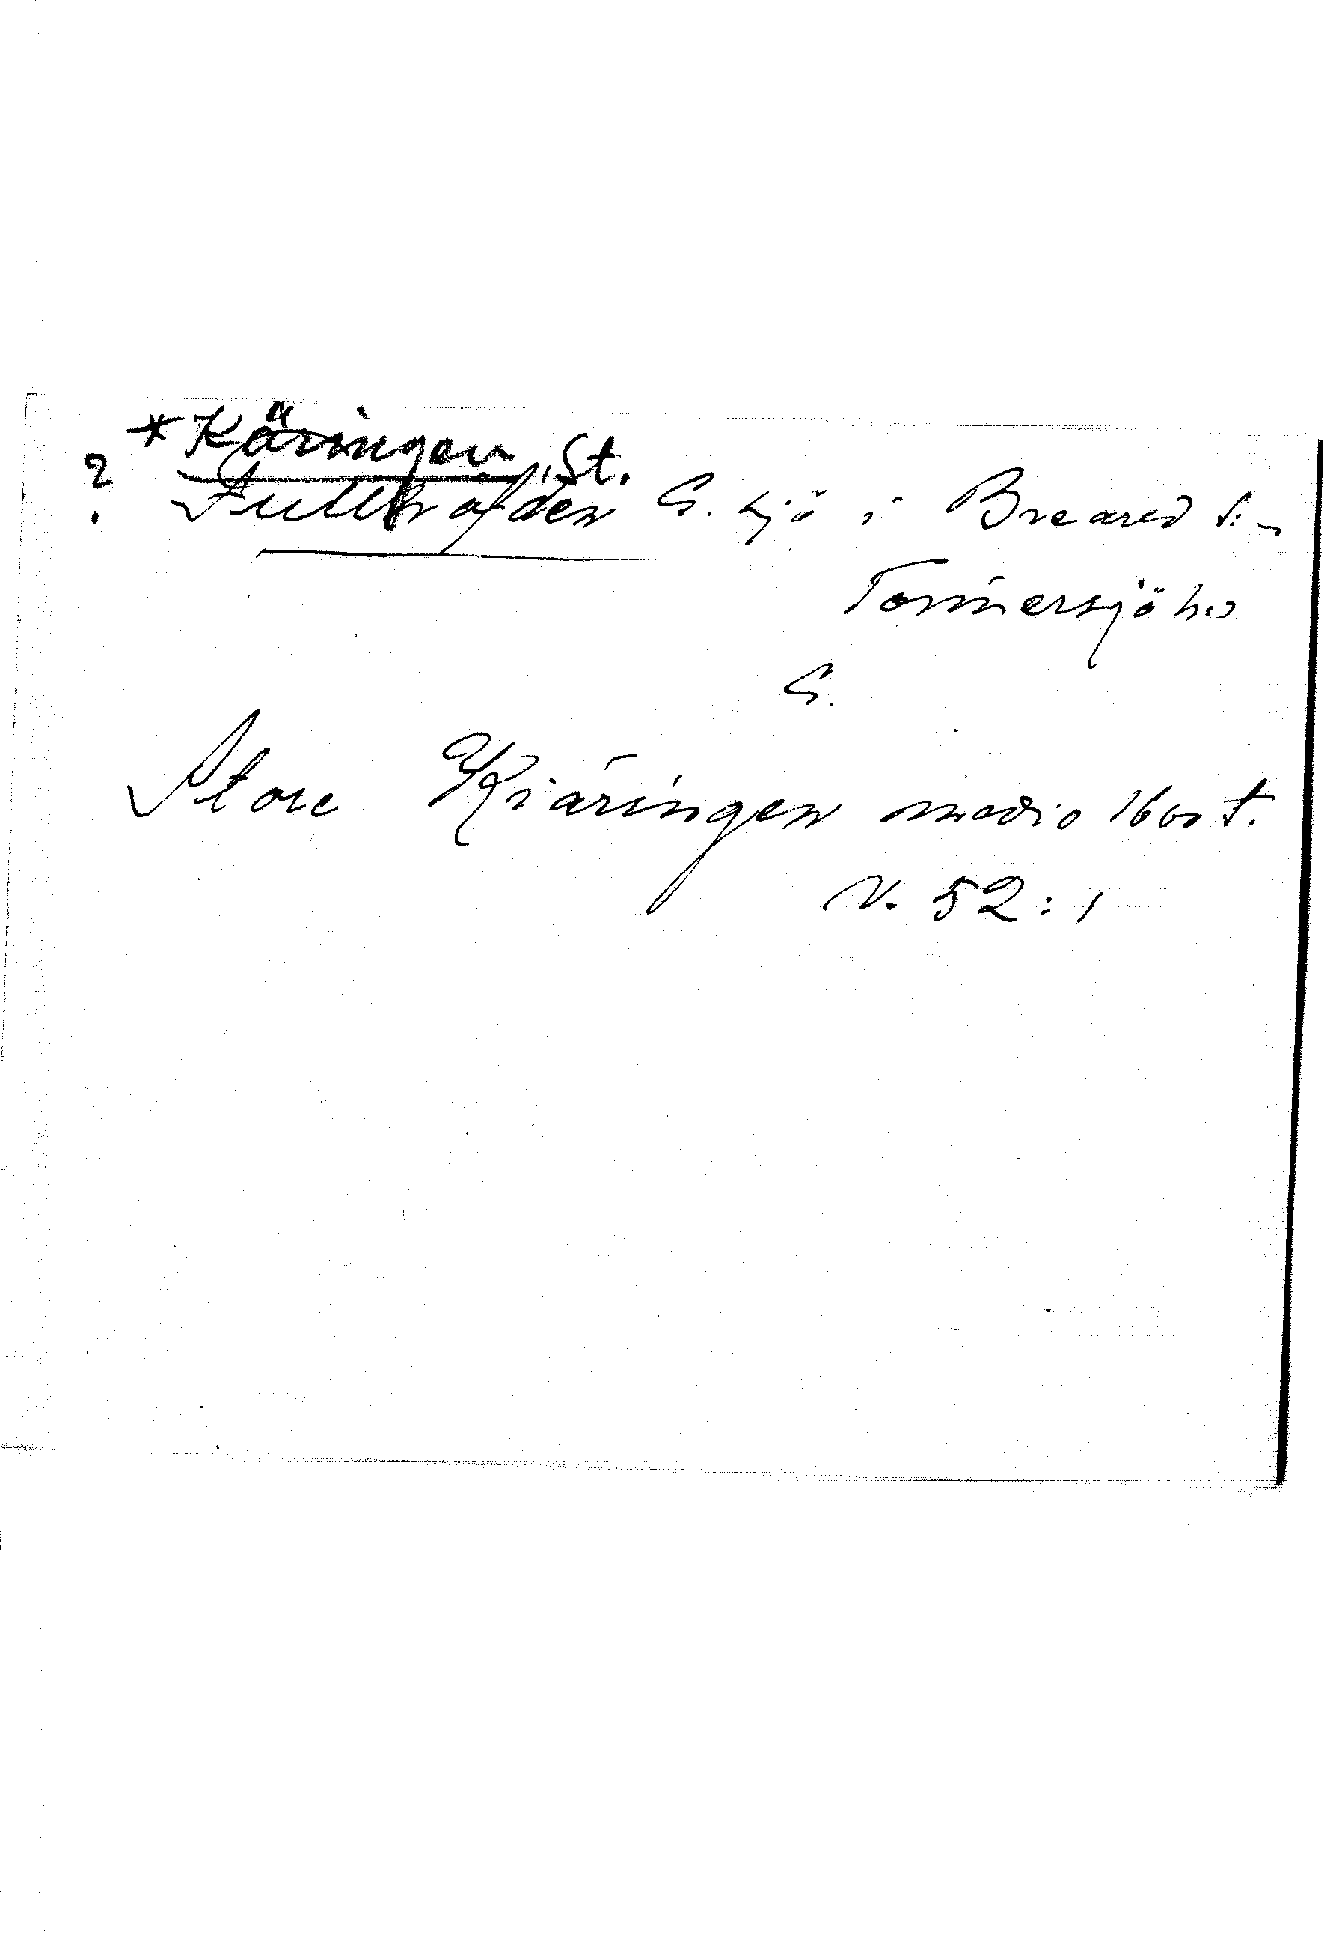 *Käringen, St.
? Fullhöfden G. sjö i Breared s:n
Tönnersjö hd
G.
Store Kiäringen medio 1600 t.
V. 52:1